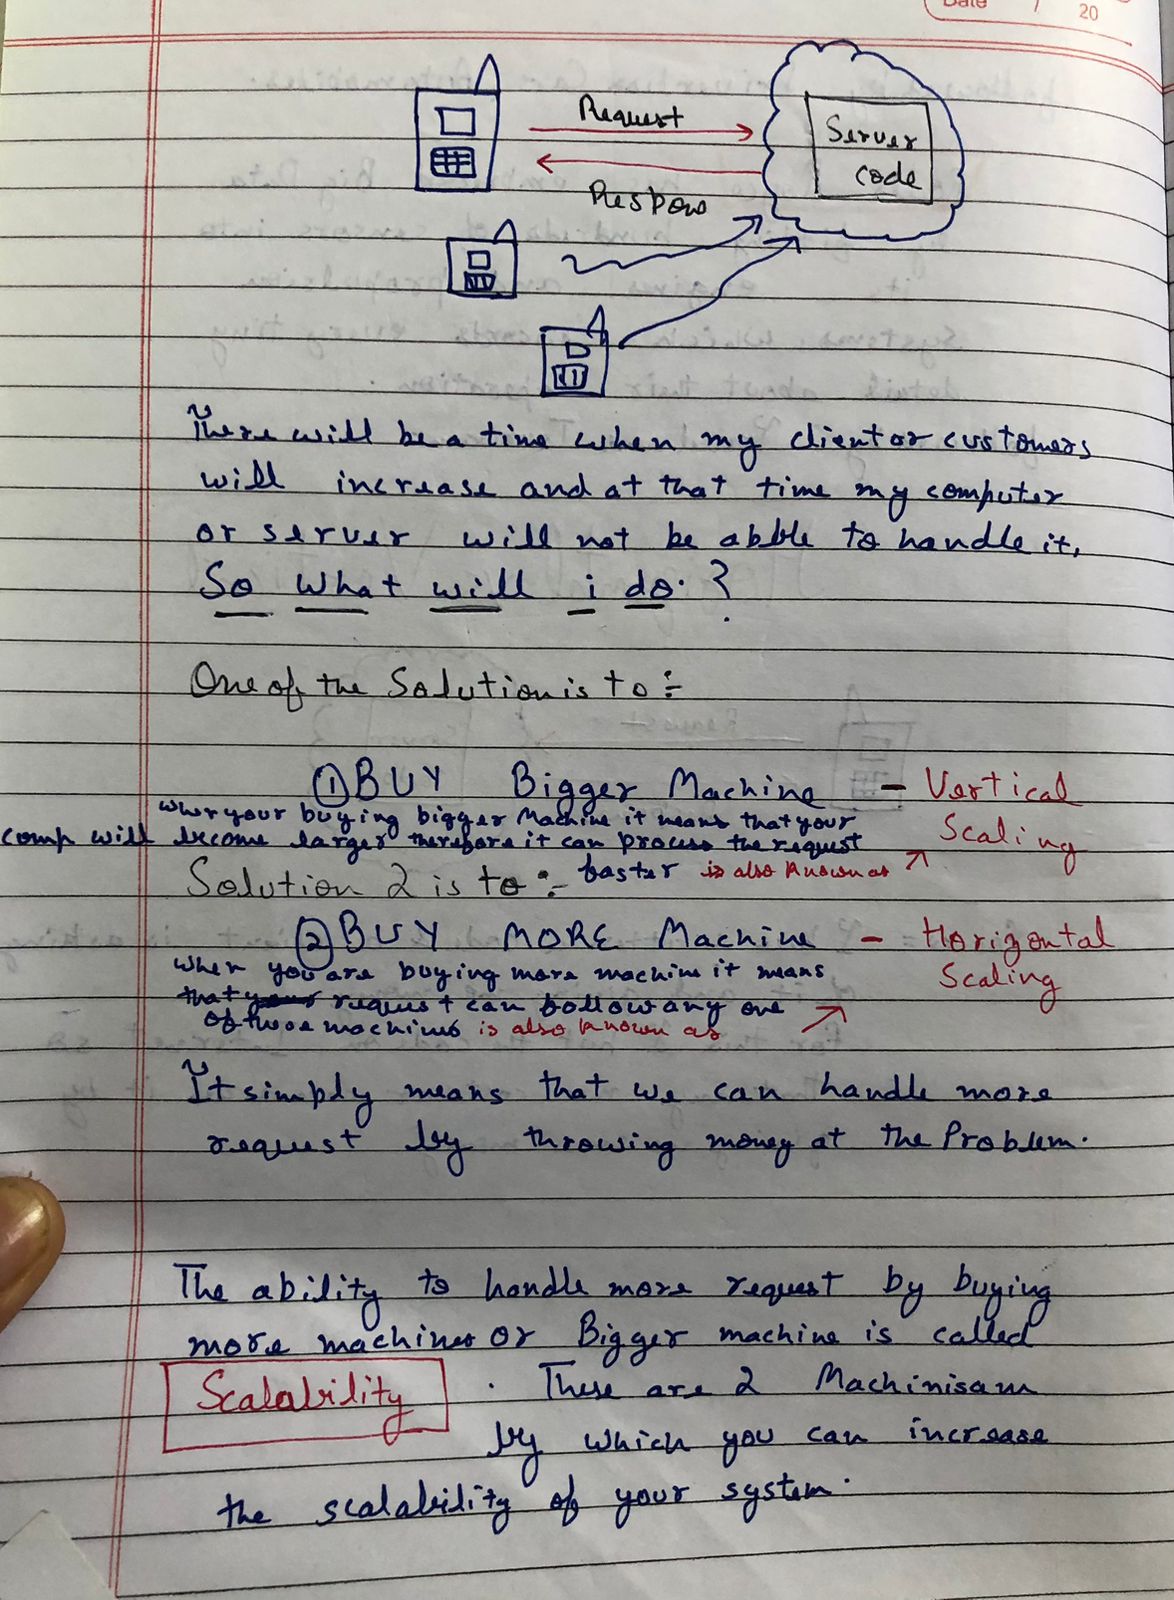 Date / 20
Request
Server
code
Respons
There will be a time when my client or customers
will increase and at that time my computer
or server will not be abble to handle it,
So what will i do. ?
One of the Solution is to :-
① BUY Bigger Machine - Vertical
Scaling
when your buying bigger Machine it means that your
comp will become larger therefore it can process the request
faster is also known as
Solution 2 is to :-
② BUY MORE Machine - Horizontal
Scaling
when you are buying more machine it means
that request can follow any one
of those machines is also known as
It simply means that we can handle more
request by throwing money at the Problem.
The ability to handle more request by buying
more machines or Bigger machine is called
Scalability . These are 2 Machinisam
by which you can increase
the scalability of your system.